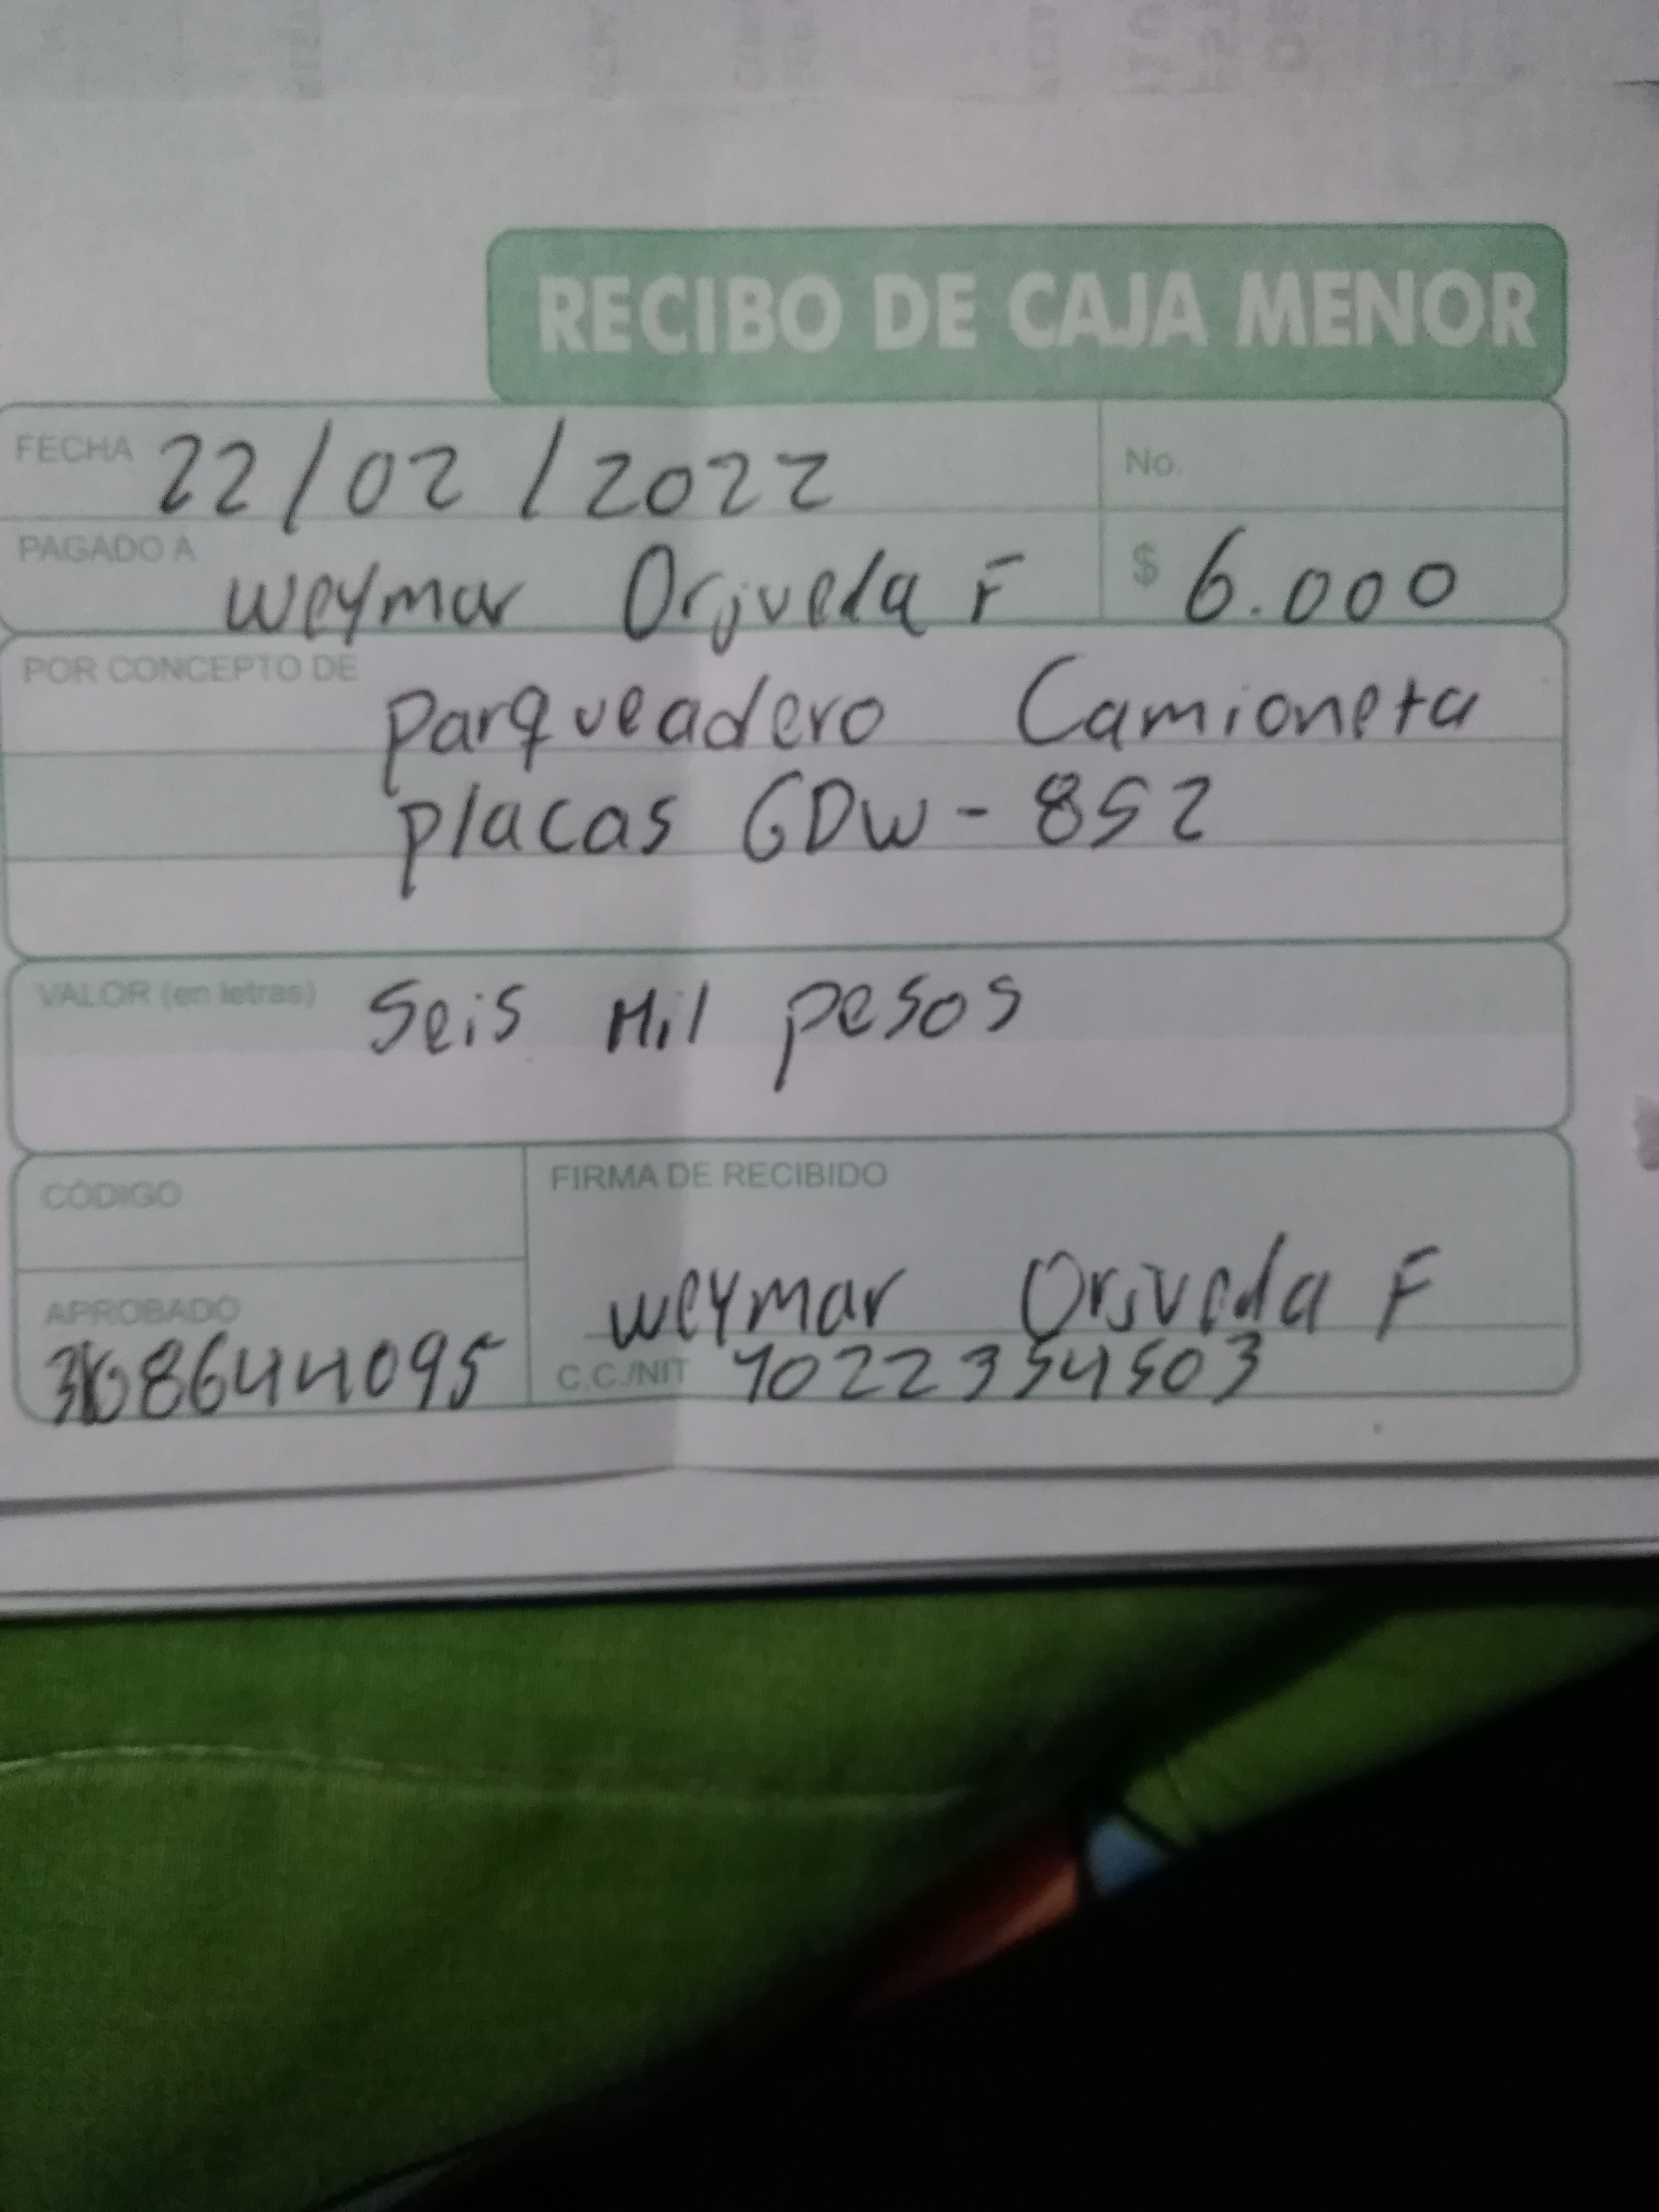 RECIBO DE CAJA MENOR
FECHA 22/02/2022 No.
PAGADO A Weymar Orjvela F $ 6.000
POR CONCEPTO DE parqueadero Camioneta
placas GDW - 852
VALOR (en letras) Seis Mil pesos
CÓDIGO
FIRMA DE RECIBIDO
APROBADO
Weymar Orjvela F
C.C./NIT 1022354503